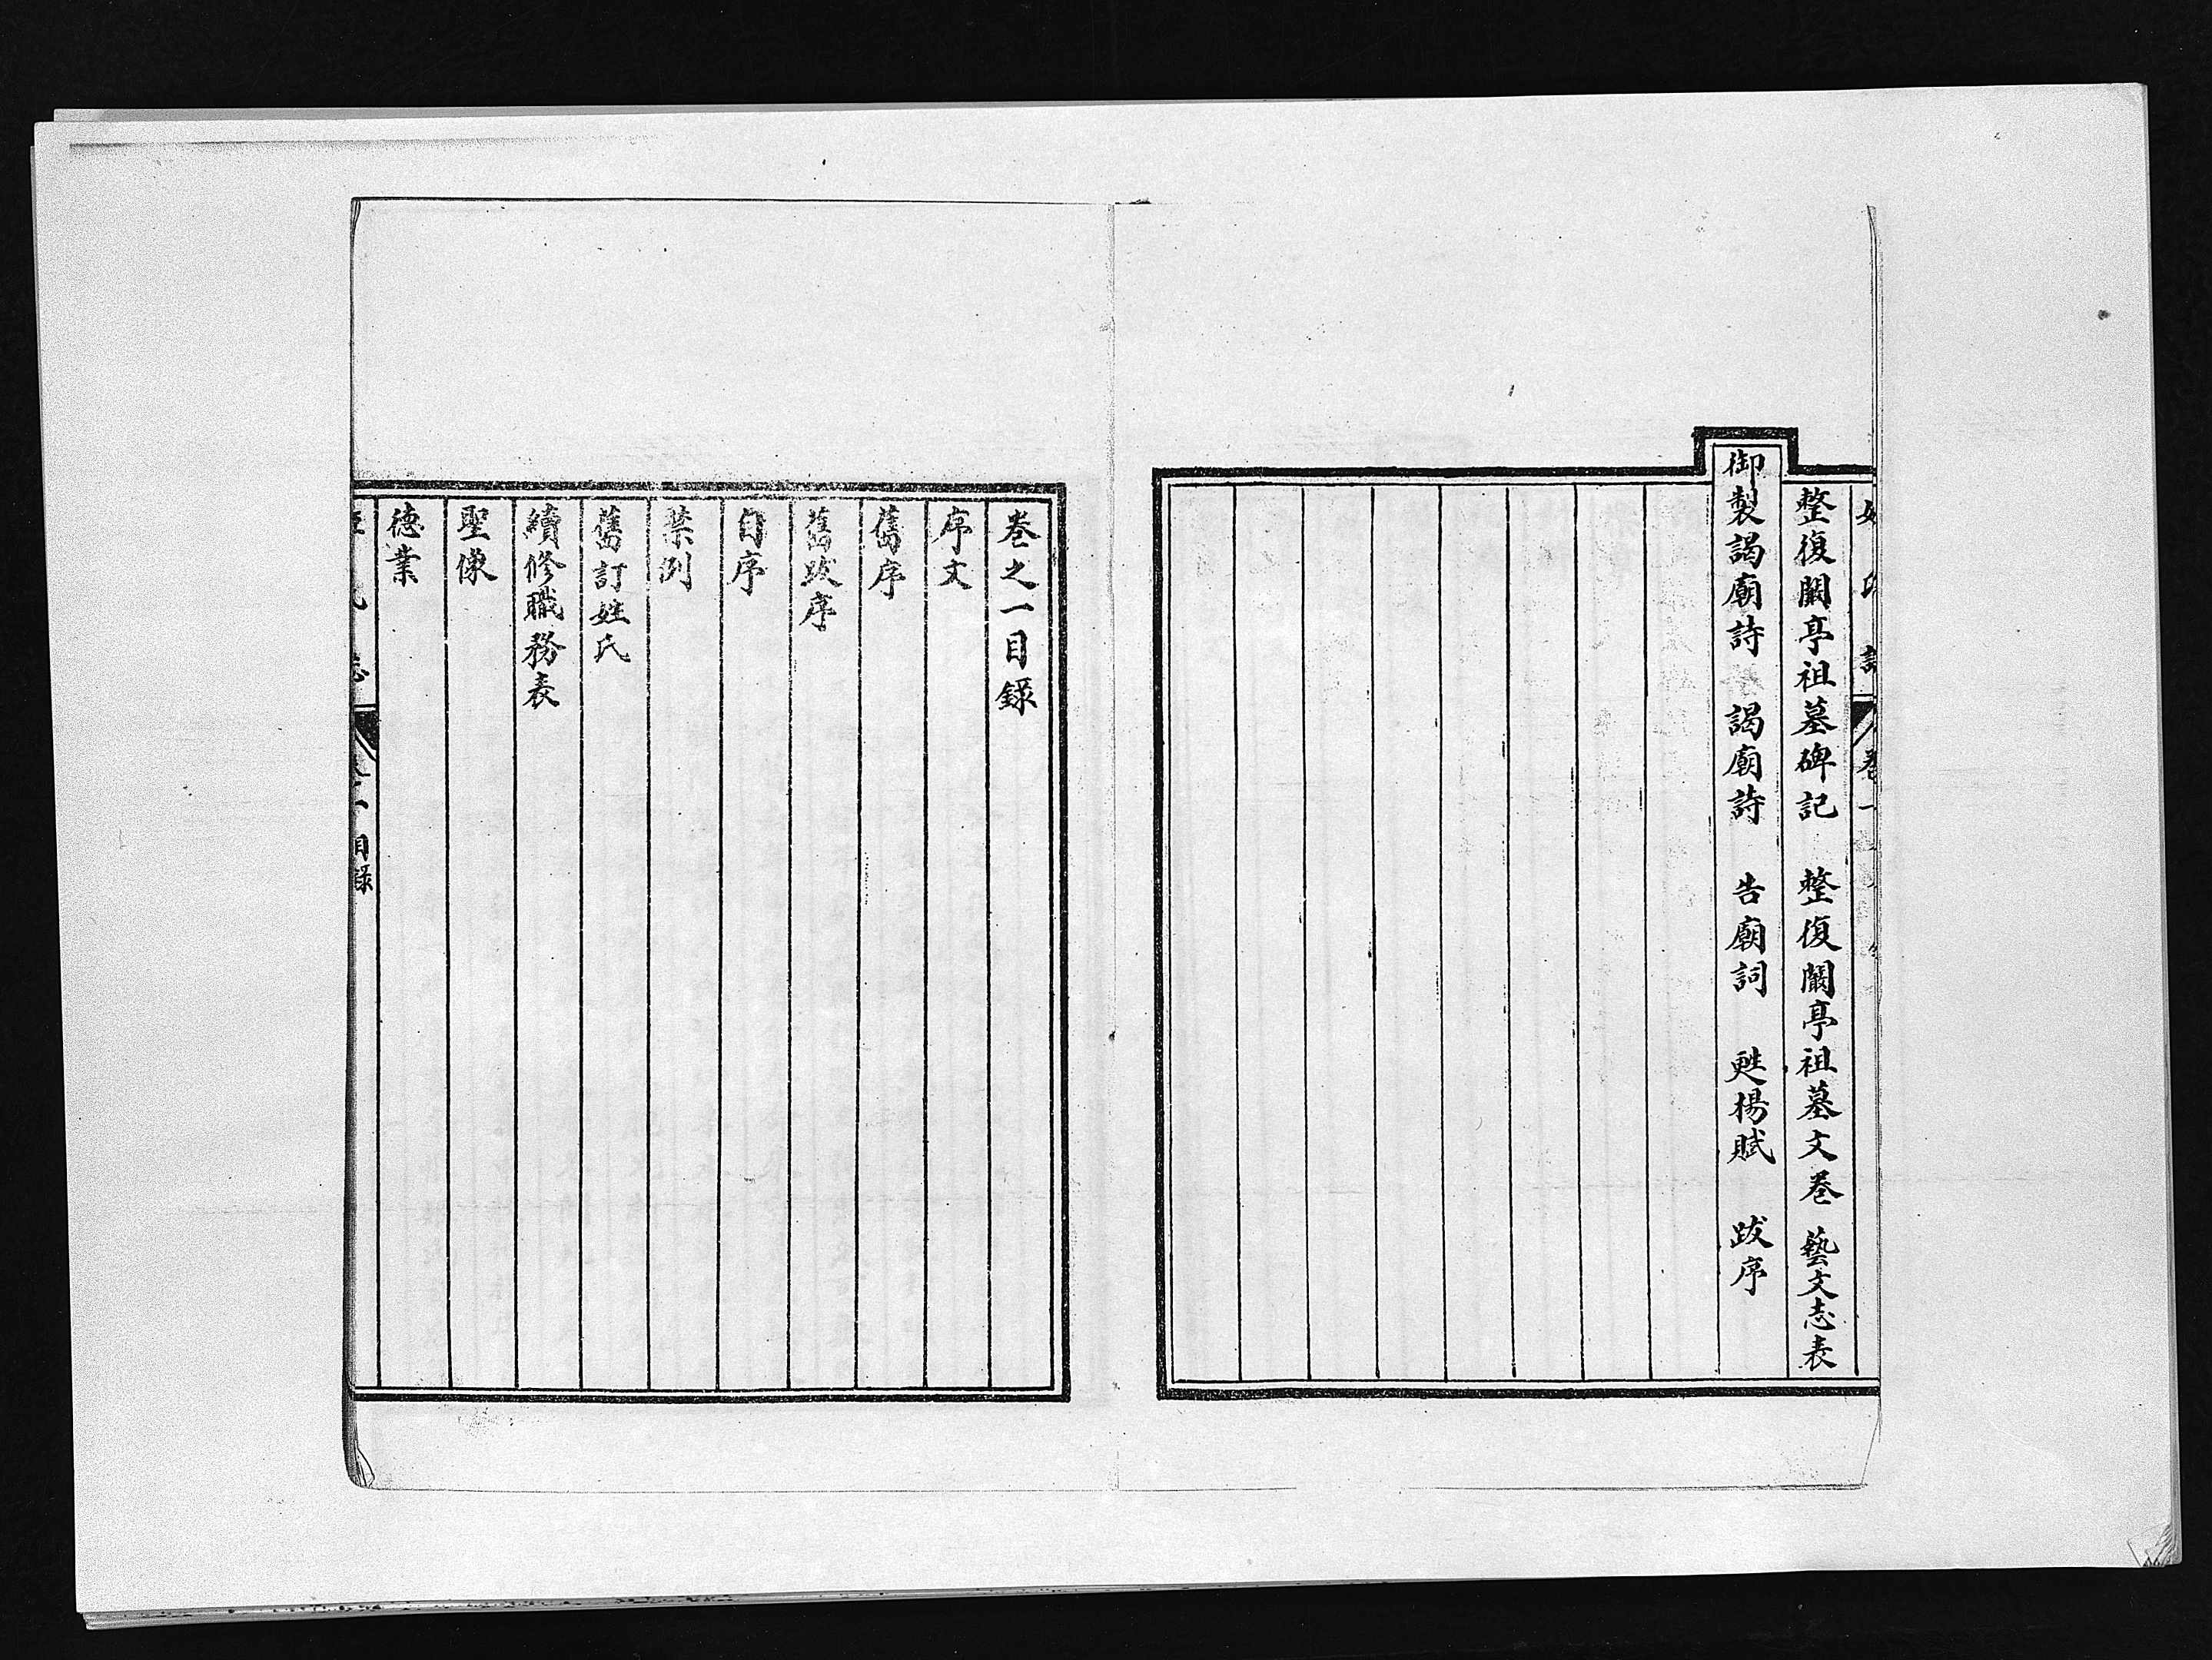 卷一
整復闕亭祖墓碑記　整復闕亭祖墓文卷　藝文志表
御製謁廟詩　謁廟詩　告廟詞　甦楊賦　跋序
卷之一目錄
序文
舊序
舊跋序
自序
禁例
舊訂姓氏
續修職務表
聖像
德業
目錄